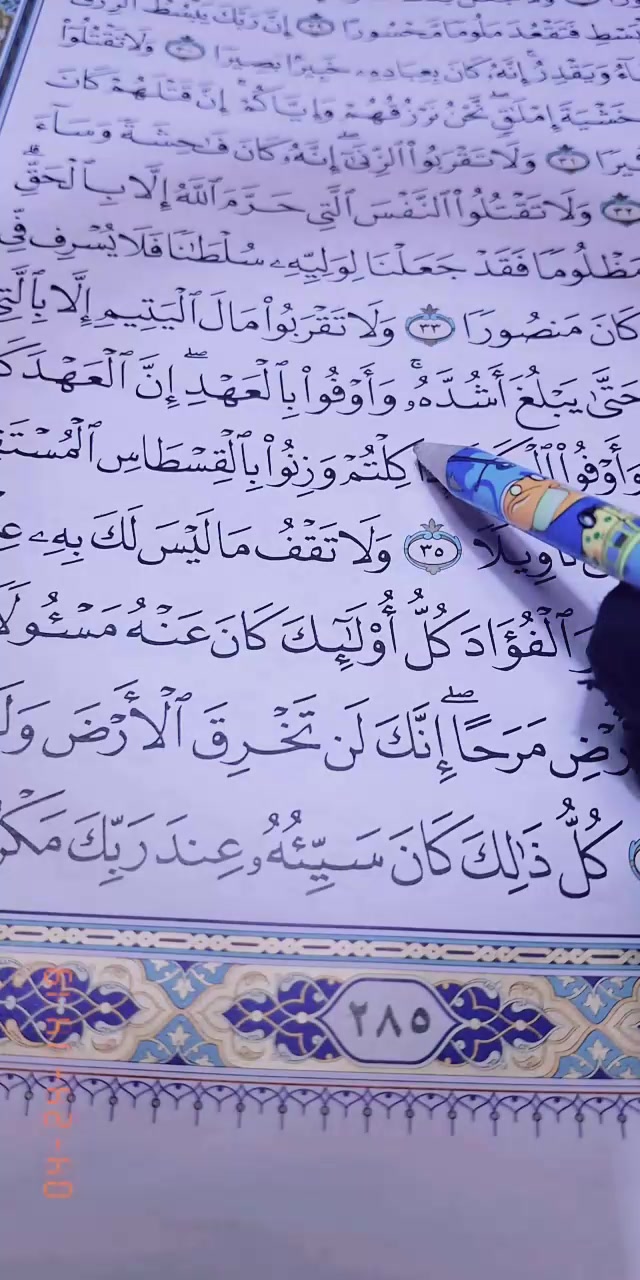 فَتَقْعُدَ مَلُومًا مَّحْسُورًا ٢٩ إِنَّ رَبَّكَ يَبْسُطُ الرِّزْقَ
وَيَقْدِرُ إِنَّهُۥ كَانَ بِعِبَادِهِۦ خَبِيرًۢا بَصِيرًا ٣٠ وَلَا تَقْتُلُوٓا۟
خَشْيَةَ إِمْلَٰقٍ ۖ نَّحْنُ نَرْزُقُهُمْ وَإِيَّاكُمْ ۚ إِنَّ قَتْلَهُمْ كَانَ
٣١ وَلَا تَقْرَبُوا۟ ٱلزِّنَىٰٓ ۖ إِنَّهُۥ كَانَ فَٰحِشَةً وَسَآءَ
٣٢ وَلَا تَقْتُلُوا۟ ٱلنَّفْسَ ٱلَّتِى حَرَّمَ ٱللَّهُ إِلَّا بِٱلْحَقِّ ۗ
مَظْلُومًا فَقَدْ جَعَلْنَا لِوَلِيِّهِۦ سُلْطَٰنًا فَلَا يُسْرِف فِّى
كَانَ مَنصُورًا ٣٣ وَلَا تَقْرَبُوا۟ مَالَ ٱلْيَتِيمِ إِلَّا بِٱلَّتِى
حَتَّىٰ يَبْلُغَ أَشُدَّهُۥ ۚ وَأَوْفُوا۟ بِٱلْعَهْدِ ۖ إِنَّ ٱلْعَهْدَ
وَأَوْفُوا۟ كِلْتُمْ وَزِنُوا۟ بِٱلْقِسْطَاسِ
٣٥ وَلَا تَقْفُ مَا لَيْسَ لَكَ بِهِۦ
ٱلْفُؤَادَ كُلُّ أُو۟لَٰٓئِكَ كَانَ عَنْهُ مَسْـُٔولًا
مَرَحًا ۖ إِنَّكَ لَن تَخْرِقَ ٱلْأَرْضَ
كُلُّ ذَٰلِكَ كَانَ سَيِّئُهُۥ عِندَ رَبِّكَ
٢٨٥